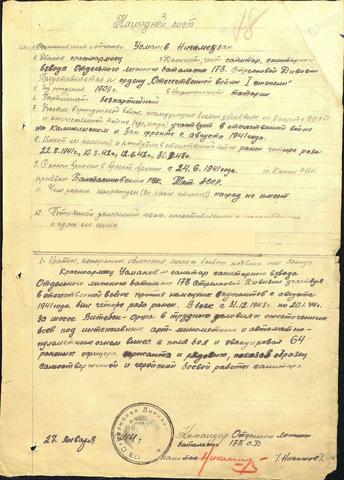 18
Наградной лист
1. Фамилия имя и отчество Усманов Нигамедзян
2. Звание красноармеец 3. Должность, часть санитар, санитарного
взвода Отдельного лыжного батальона 178 Стрелковой Дивизии
Представляется к ордену "Отечественной Войны I степени"
4. Год рождения 1909г. 5. Национальность татарин
6. Партийность беспартийный
7. Участие в гражданской войне, последующих боевых действиях по защите СССР
и отечественной войне участвует в отечественной войне
на Калининском и Зап. фронте с августа 1941 года.
8. Имеет ли ранения и контузии в отечественной войне ранен четыре раза
9. С какого времени в Красной Армии с 24.6.1941 года 10. Каким РВК
призван Балтасинским РВК Тат. АССР.
11. Чем ранее награжден (за какие отличия) наград не имеет
12. Постоянный домашний адрес, представляемого к награждению
и адрес его семьи
1. Краткое, конкретное изложение личного боевого подвига или заслуг
Красноармеец Усманов - санитар санитарного взвода
Отдельного лыжного батальона 178 Стрелковой Дивизии участвуя
в отечественной войне против немецких оккупантов с августа
1941 года был четыре раза ранен. В боях с 31.12.1943г. по 20.1.44г.
за шоссе Витебск-Орша в трудных условиях ожесточенных
боев под интенсивным арт-минометным и автоматно-
пулеметным огнем вынес с поля боя и эвакуировал 64
раненых офицера, сержанта и рядовых, показав образец
самоотверженной и геройской боевой работы санитара.
27 Января 1944 г.
Командир Отдельного лыжного
батальона 178 С.Д.
капитан /Никишов/